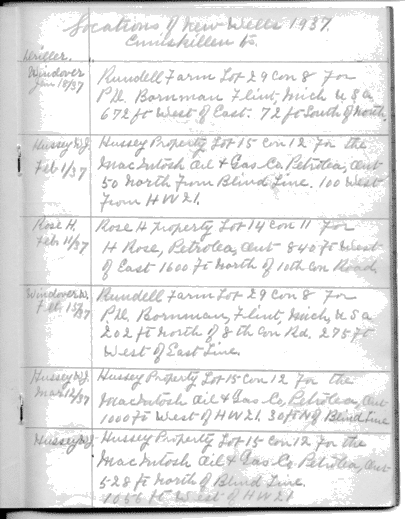 Locations of New Wells 1937.
Enniskillen Ts.
Driller.
Windover
Jan 18/37
Rundell Farm Lot 29 Con 8 For
P.D. Bornman Flint, Mich U S A
672 ft West of East. 72 ft South of North.
Hussey W.J.
Feb 1/37
Hussey Property Lot 15 Con 12 For the
MacIntosh Oil & Gas Co Petrolea, Ont
50 North From Blind Line. 100 West
From HW 21.
Rose H.
Feb 11/37
Rose H Property Lot 14 Con 11 For
H Rose, Petrolea, Ont 840 Ft West
of East 1600 Ft North of 10th Con Road,
Windover W.
Feb 15/37
Rundell Farm Lot 29 Con 8 For
P.D. Bornman, Flint, Mich, U S A
202 ft North of 8th Con Rd. 275 Ft
West of East Line.
Hussey W.J.
Mar 12/37
Hussey Property Lot 15 Con 12 For the
MacIntosh Oil & Gas Co, Petrolea, Ont
1000 Ft West of HW 21. 30 Ft N of Blind Line
Hussey W.J.
Hussey Property Lot 15 Con 12 For the
MacIntosh Oil & Gas Co, Petrolea, Ont
528 ft North of Blind Line.
1056 ft West of HW 21